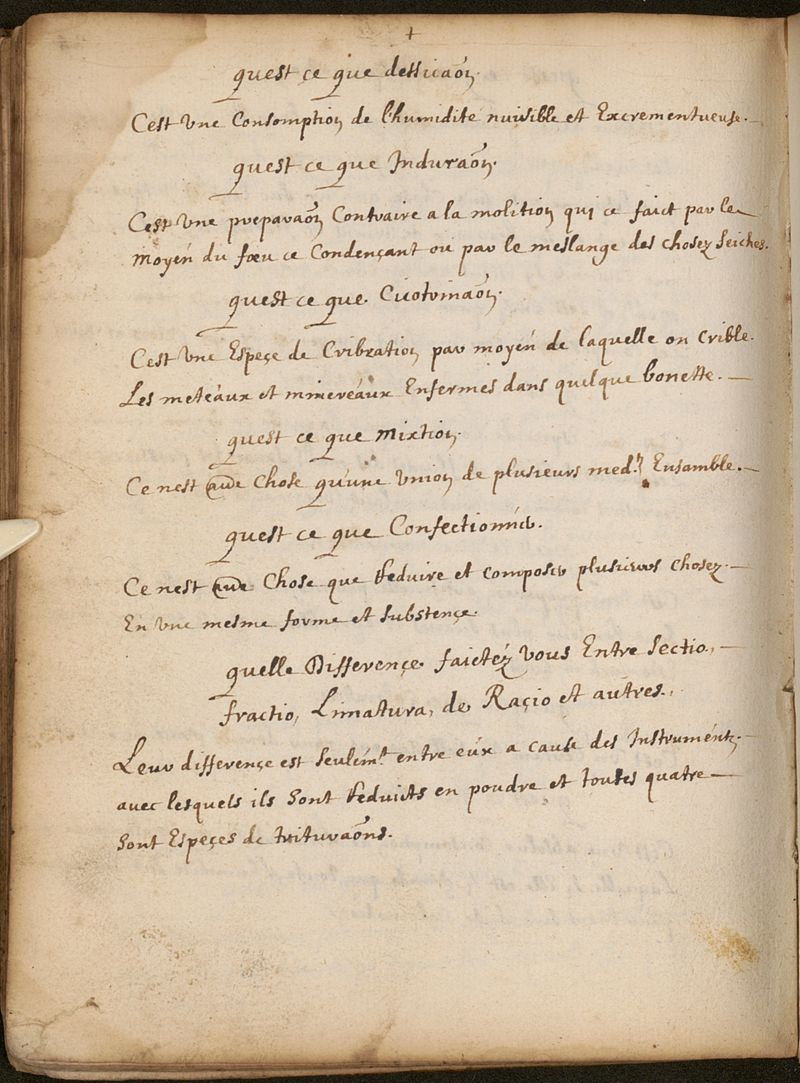 +
quest ce que dessicaõn.
Cest Une Consomption de lhumidite nuisible et Excrementueuse.
quest ce que Induraõn.
Cest Une preparaõn Contraire a la molition qui ce faict par le
moyen du foeu ce Condençant ou par le meslange des chosez seiches.
quest ce que
Cest Une Espeçe de Cribration par moyen de laquelle on Crible
Les meteaux et minereaux Enfermes dans quelque bonette.
quest ce que mixtion.
Ce nest Chose qu'une Union de plusieurs med. Ensamble.
quest ce que
Ce nest Chose que Reduire et composer plusieurs chosez
En Une mesme forme et substençe.
quelle Differençe faictez vous Entre Sectio,
fractio, Limatura, de Raçio et autres.
Leur differençe est seulemt. entre eux a cause des Instrumentz
avec lesquels ils sont Reduicts en poudre et toutes quatre
sont Espeçes de trituraõns.